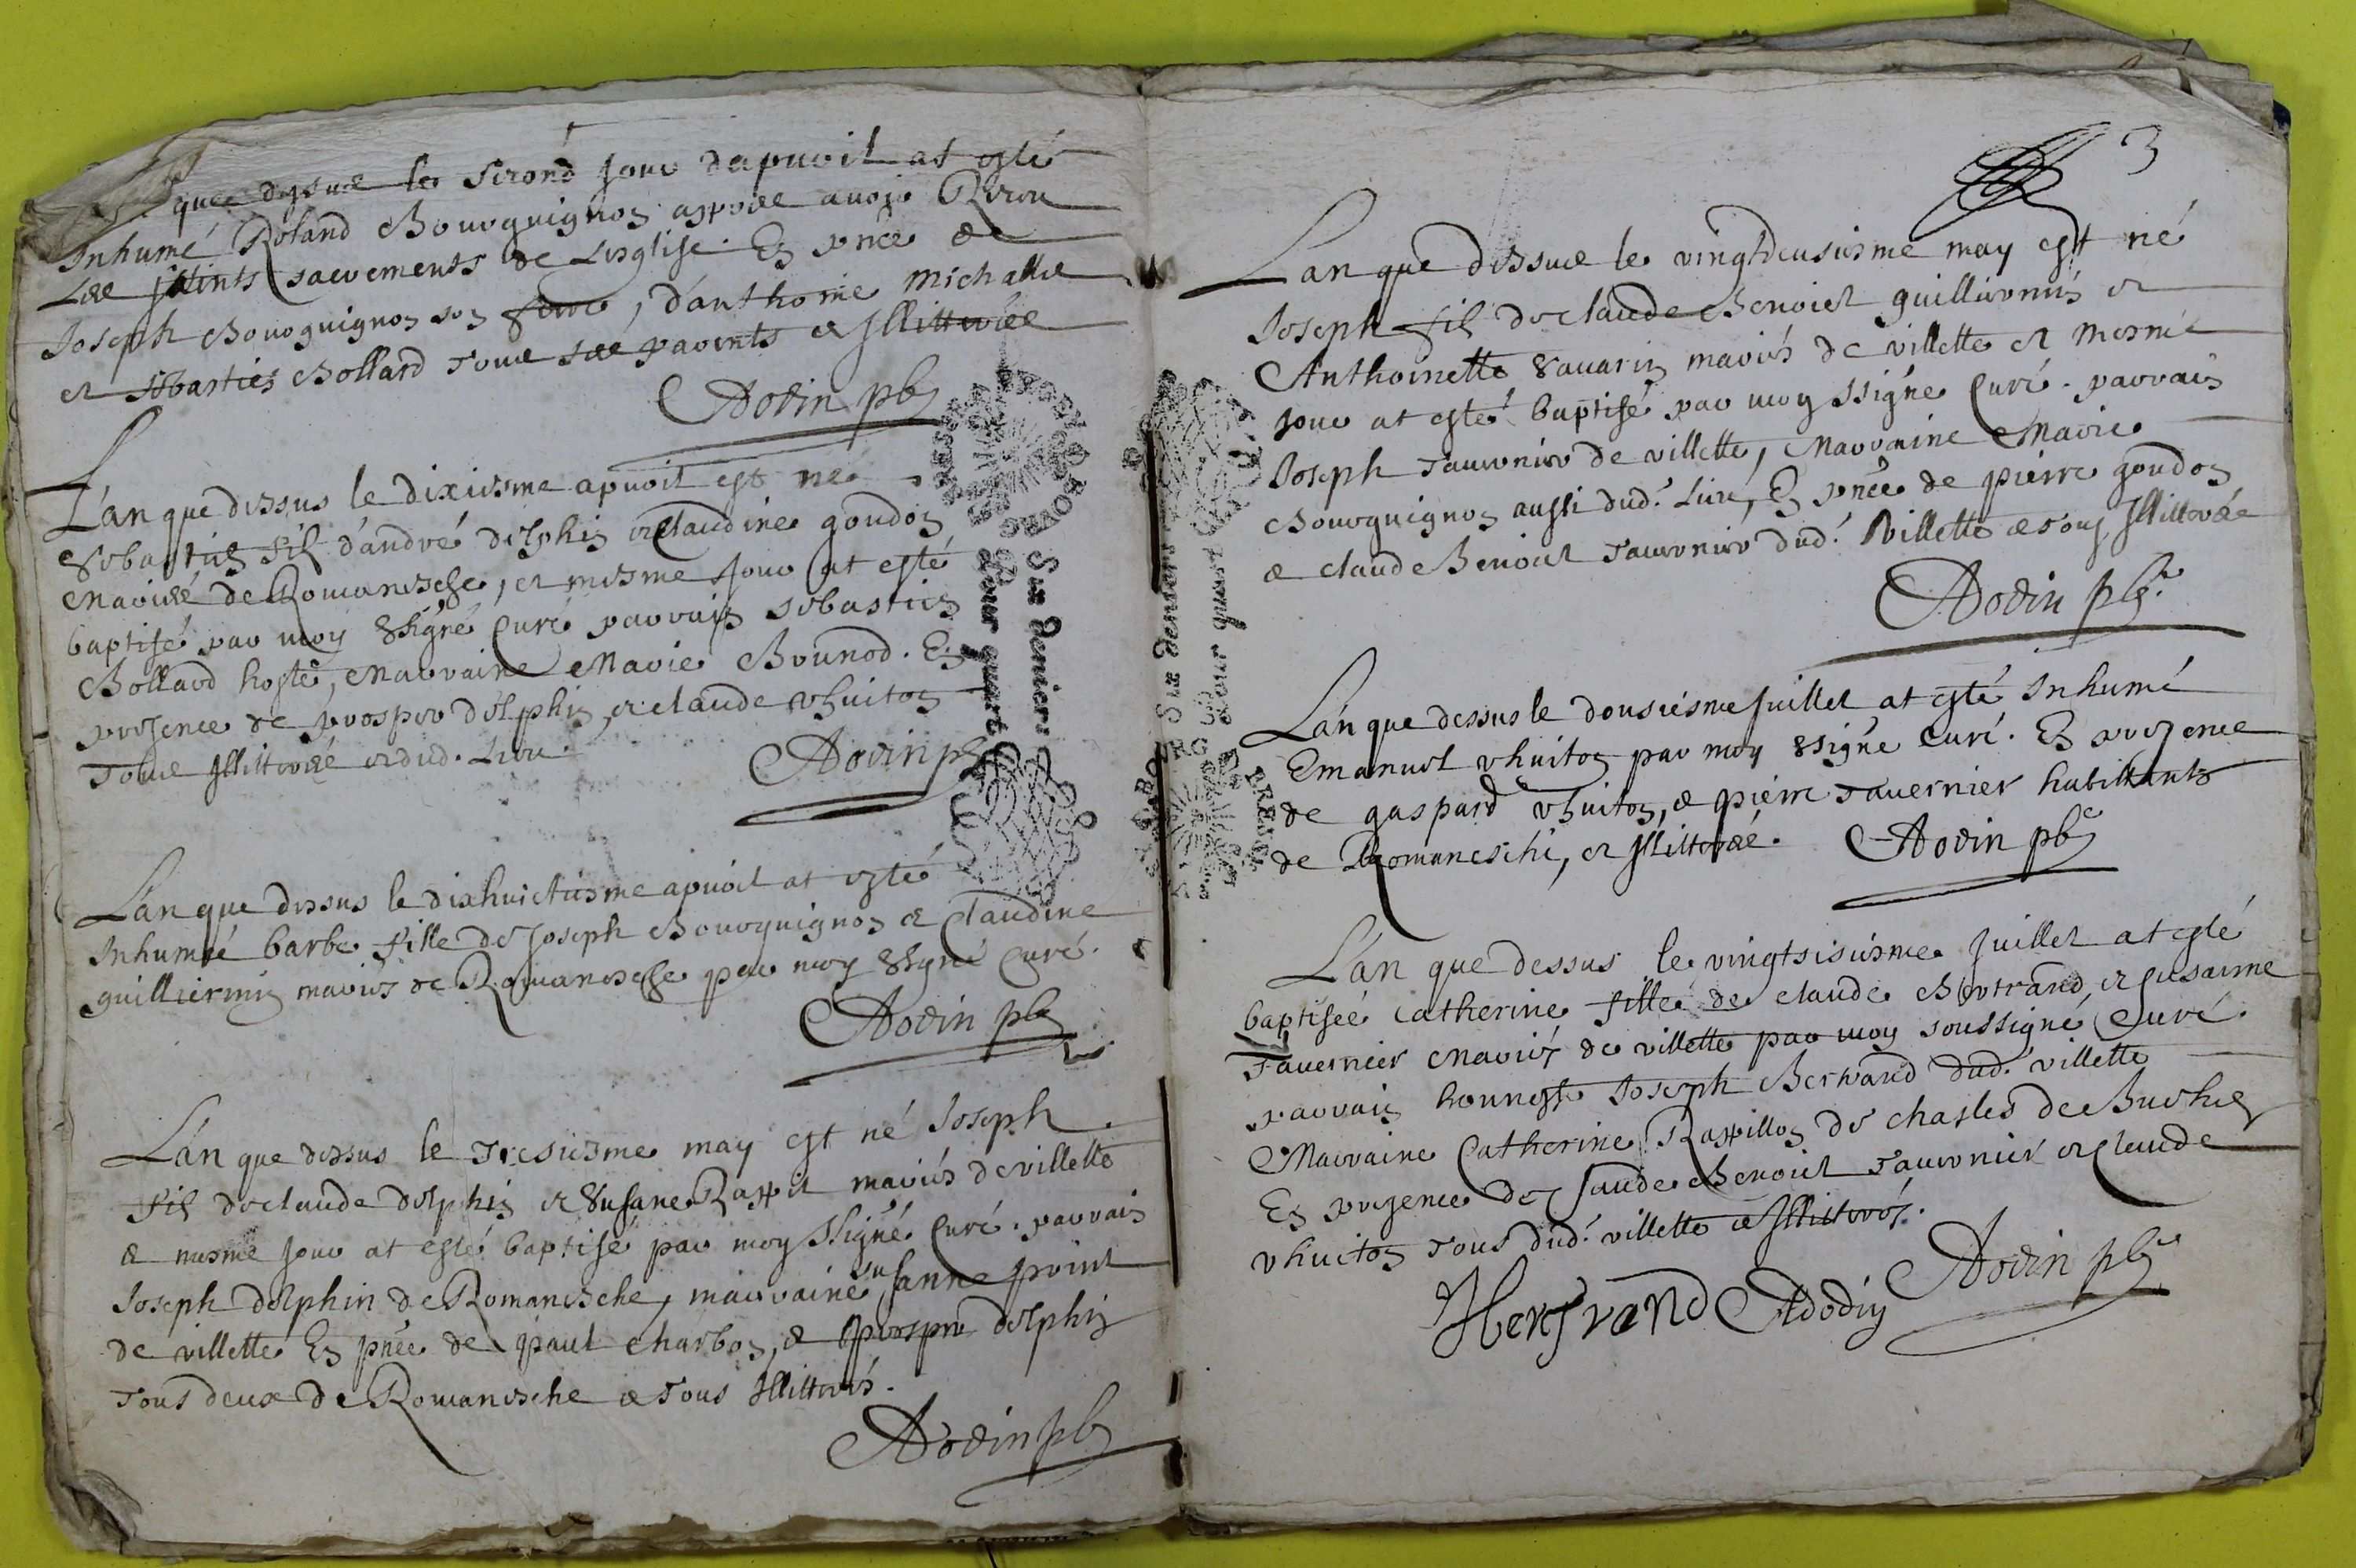 que dessus le second jour dapvril at esté
Inhumé Roland Bourguignon appres avoir Receu
Les saints sacrements de Lesglise. En pnce de
Joseph Bourguignon son frere, d'anthoine michallet
et sebastien Bollard tous ses parents & Illitterés
Dodin pbr
L'an que dessus le dixiesme apvril est né
Sebastien fils d'andré delphin et Claudine goudon
Mariés de Romanesche, et mesme Jour at esté
baptisé par moy ssigné Curé parrain sebastien
Bollard hoste, Marraine Marie Brunod. En
presence de prosper delphin, et claude vhuiton
tous Illitterés et dud. Lieu.
Dodin pbr
Six deniers
Pour quart
L'an que dessus le dixhuictiesme apvril at esté
Inhumée barbe fille de Joseph Bourguignon & Claudine
guilliermin mariés de Romanesche par moy ssigné Curé.
Dodin pbr
L'an que dessus le tresiesme may est né Joseph
fils de claude delphin et Susane Rappit mariés de villette
& mesme jour at esté baptisé par moy ssigné Curé. parrain
Joseph delphin de Romanesche, marraine susanne point
de villette En pnce de paul charbon, & prosper delphin
tous deux de Romanesche & tous Illitterés.
Dodin pbr
3
Lan que dessus le vingtdeusiesme may est né
Joseph fils de claude Benoict guilliermin et
Anthoinette Savarin mariés de villette et mesme
jour at esté baptisé par moy ssigné Curé. parrain
Joseph Tavernier de villette, Marraine Marie
Bourguignon aussi dud. Lieu, En pnce de pierre goudon
& claude Benoict Tavernier dud. Villette & tous Illitterés
Dodin pbr.
Six deniers
Pour quart
L'an que dessus le dousiesme Juillet at esté Inhumé
Emanuel vhuiton par moy ssigné Curé. En presence
de gaspard vhuiton, & pierre Tavernier habittants
de Romaneschi, et Illitterés.
Dodin pbr
L'an que dessus le vingtsisiesme Juillet at esté
baptisée Catherine fille de claude Bertrand, et Susanne
Tavernier Mariés de villette par moy soussigné Curé.
parrain honneste Joseph Bertrand dud. villette
Marraine Catherine Rappillon de chasles de
En presence de Claude Benoict Tavernier et Claude
vhuiton tous dud. villette & Illitterés.
Dodin pbr